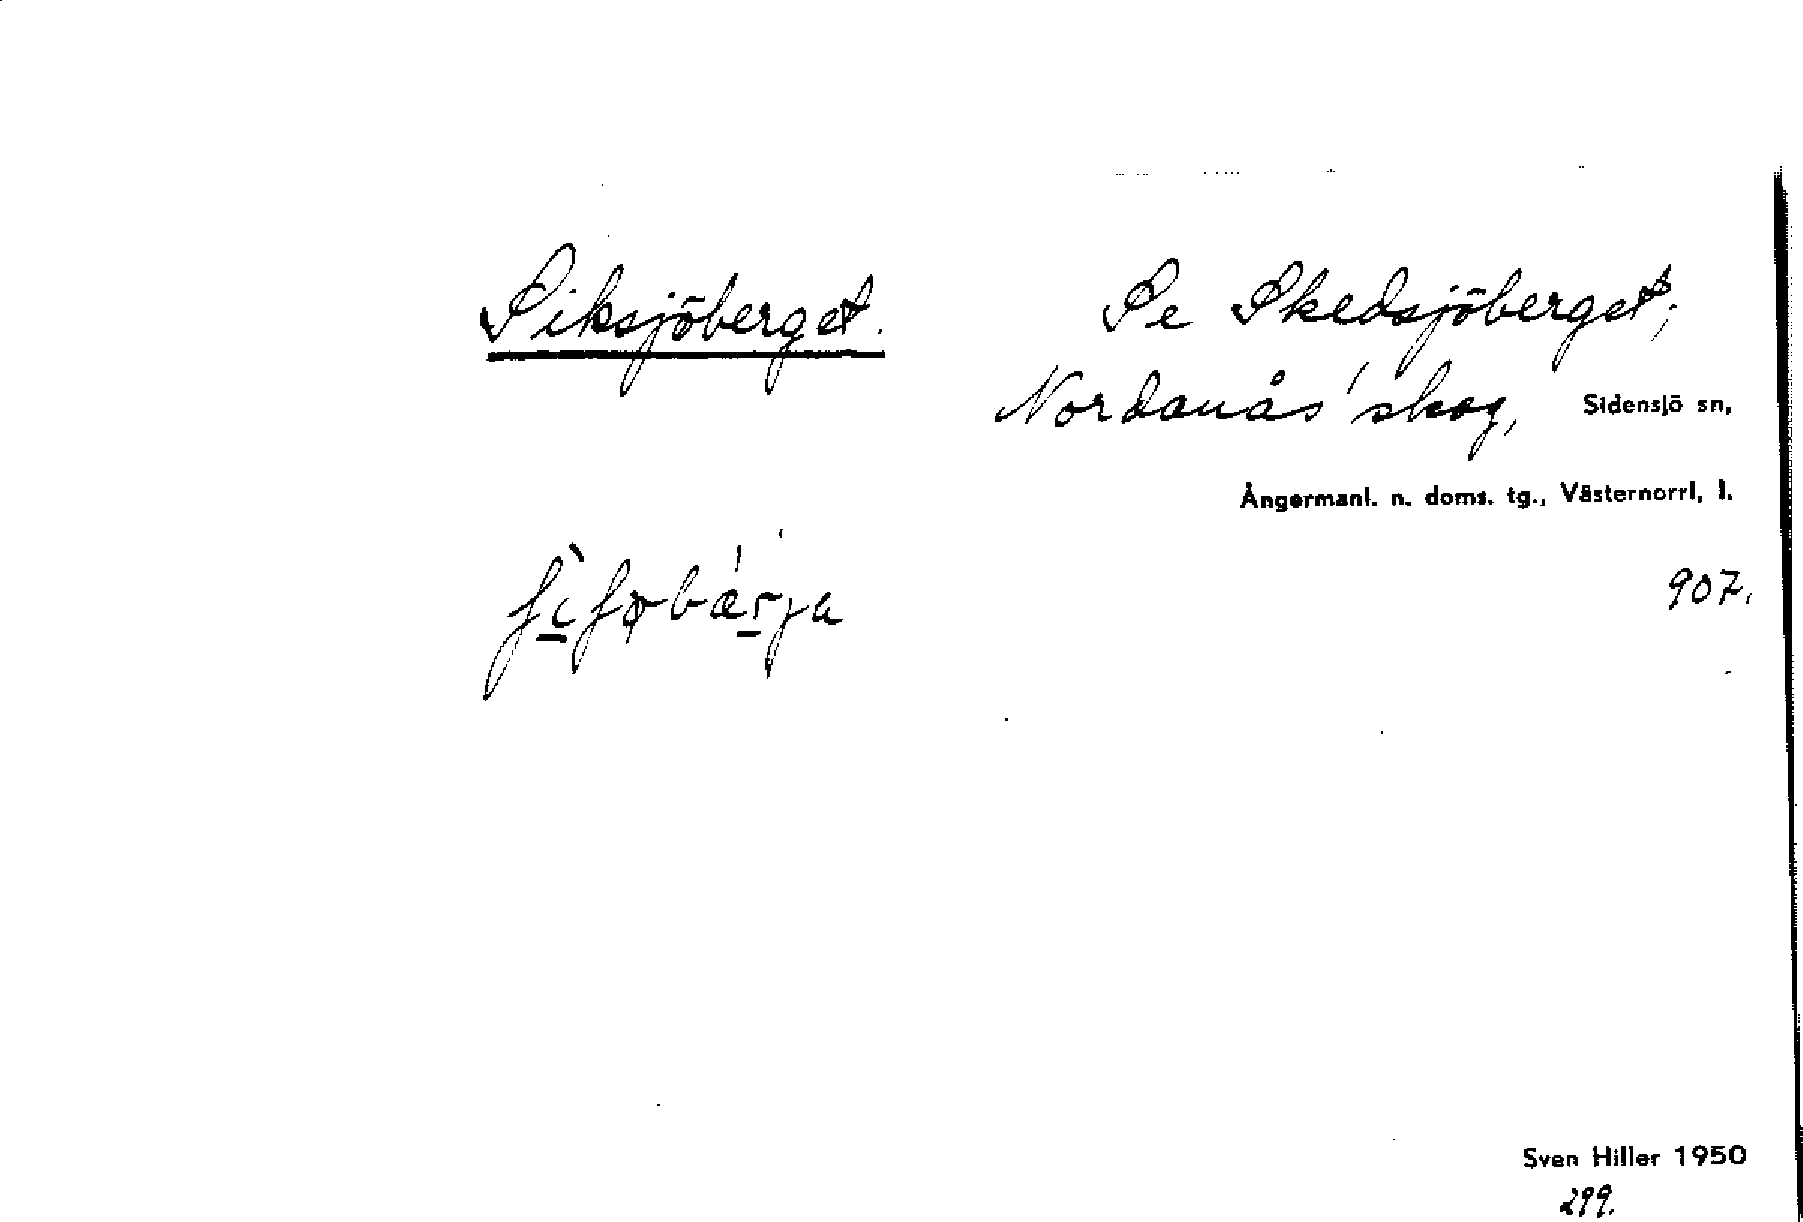 Siksjöberget.
Se Skedsjöberget;
Nordanås' skog, Sidensjö sn,
Ångermanl. n. doms. tg., Västernorrl. l.
907.
Sven Hiller 1950
299.